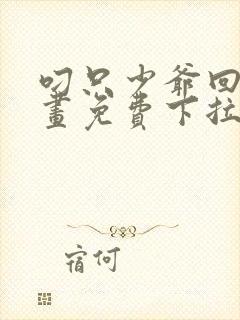 叼只少爷回
畫免費下拉
宿何